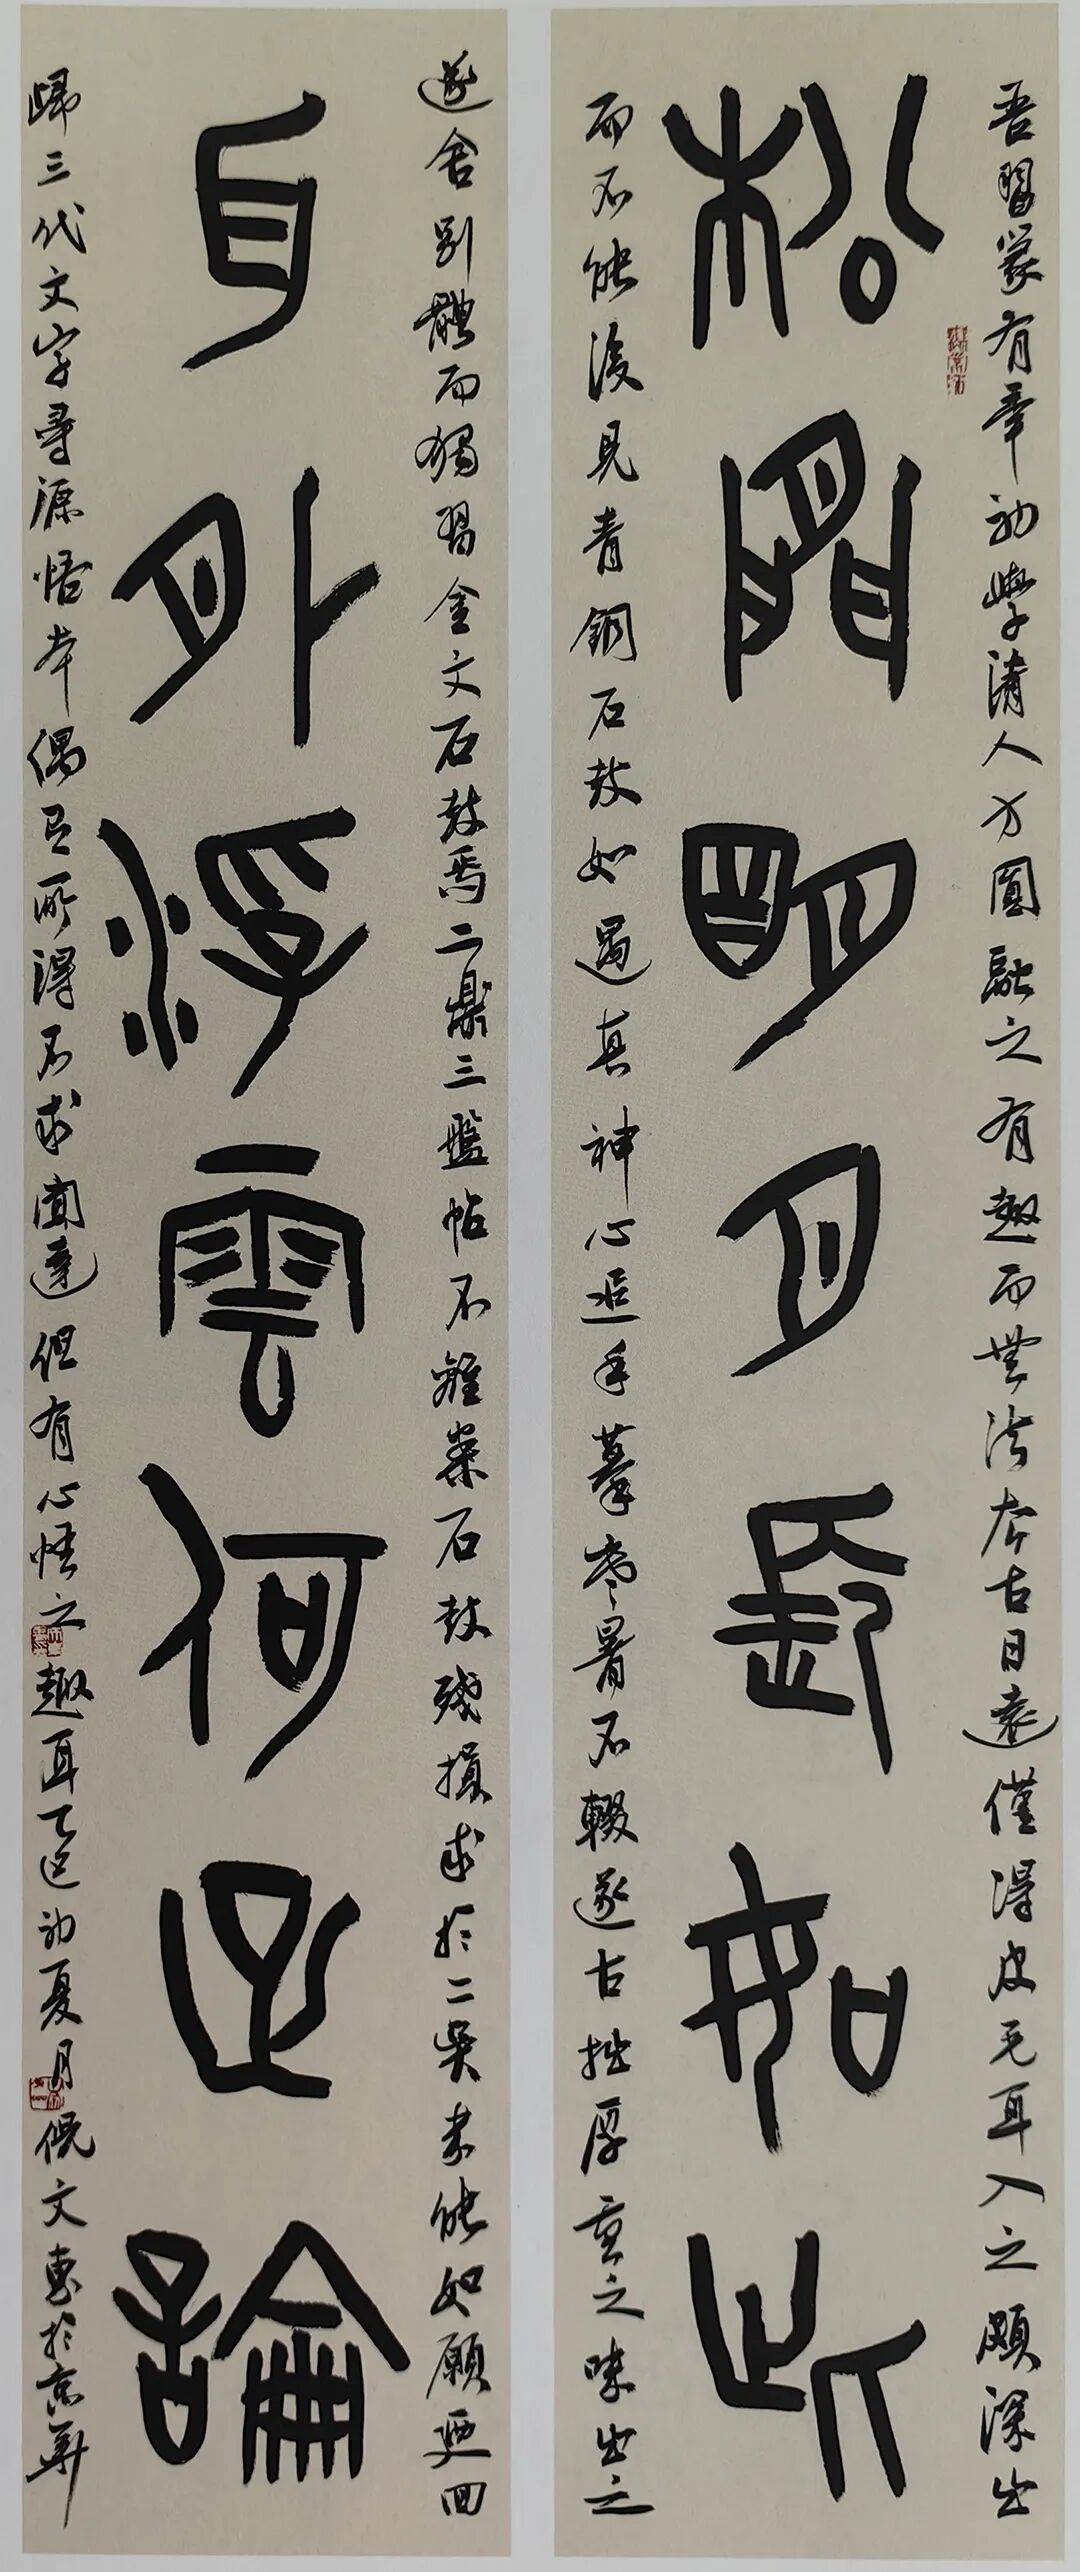 吾習篆有年初學清人方圓融之有趣而無法在古日遠僅得皮毛耳入之頗深出
松間明月長如此
而不能後見青銅石鼓如遇真神心追手摹寒暑不輟遂古拙厚重之味出之
遂舍別體而獨習金文石鼓焉二鼎三盤帖不離案石鼓殘損求於二吳未能如願迺回
身外浮雲何足論
歸三代文字尋源悟本偶有所得不求聞達但有心悟之趣耳乙巳初夏月倪文東於京華